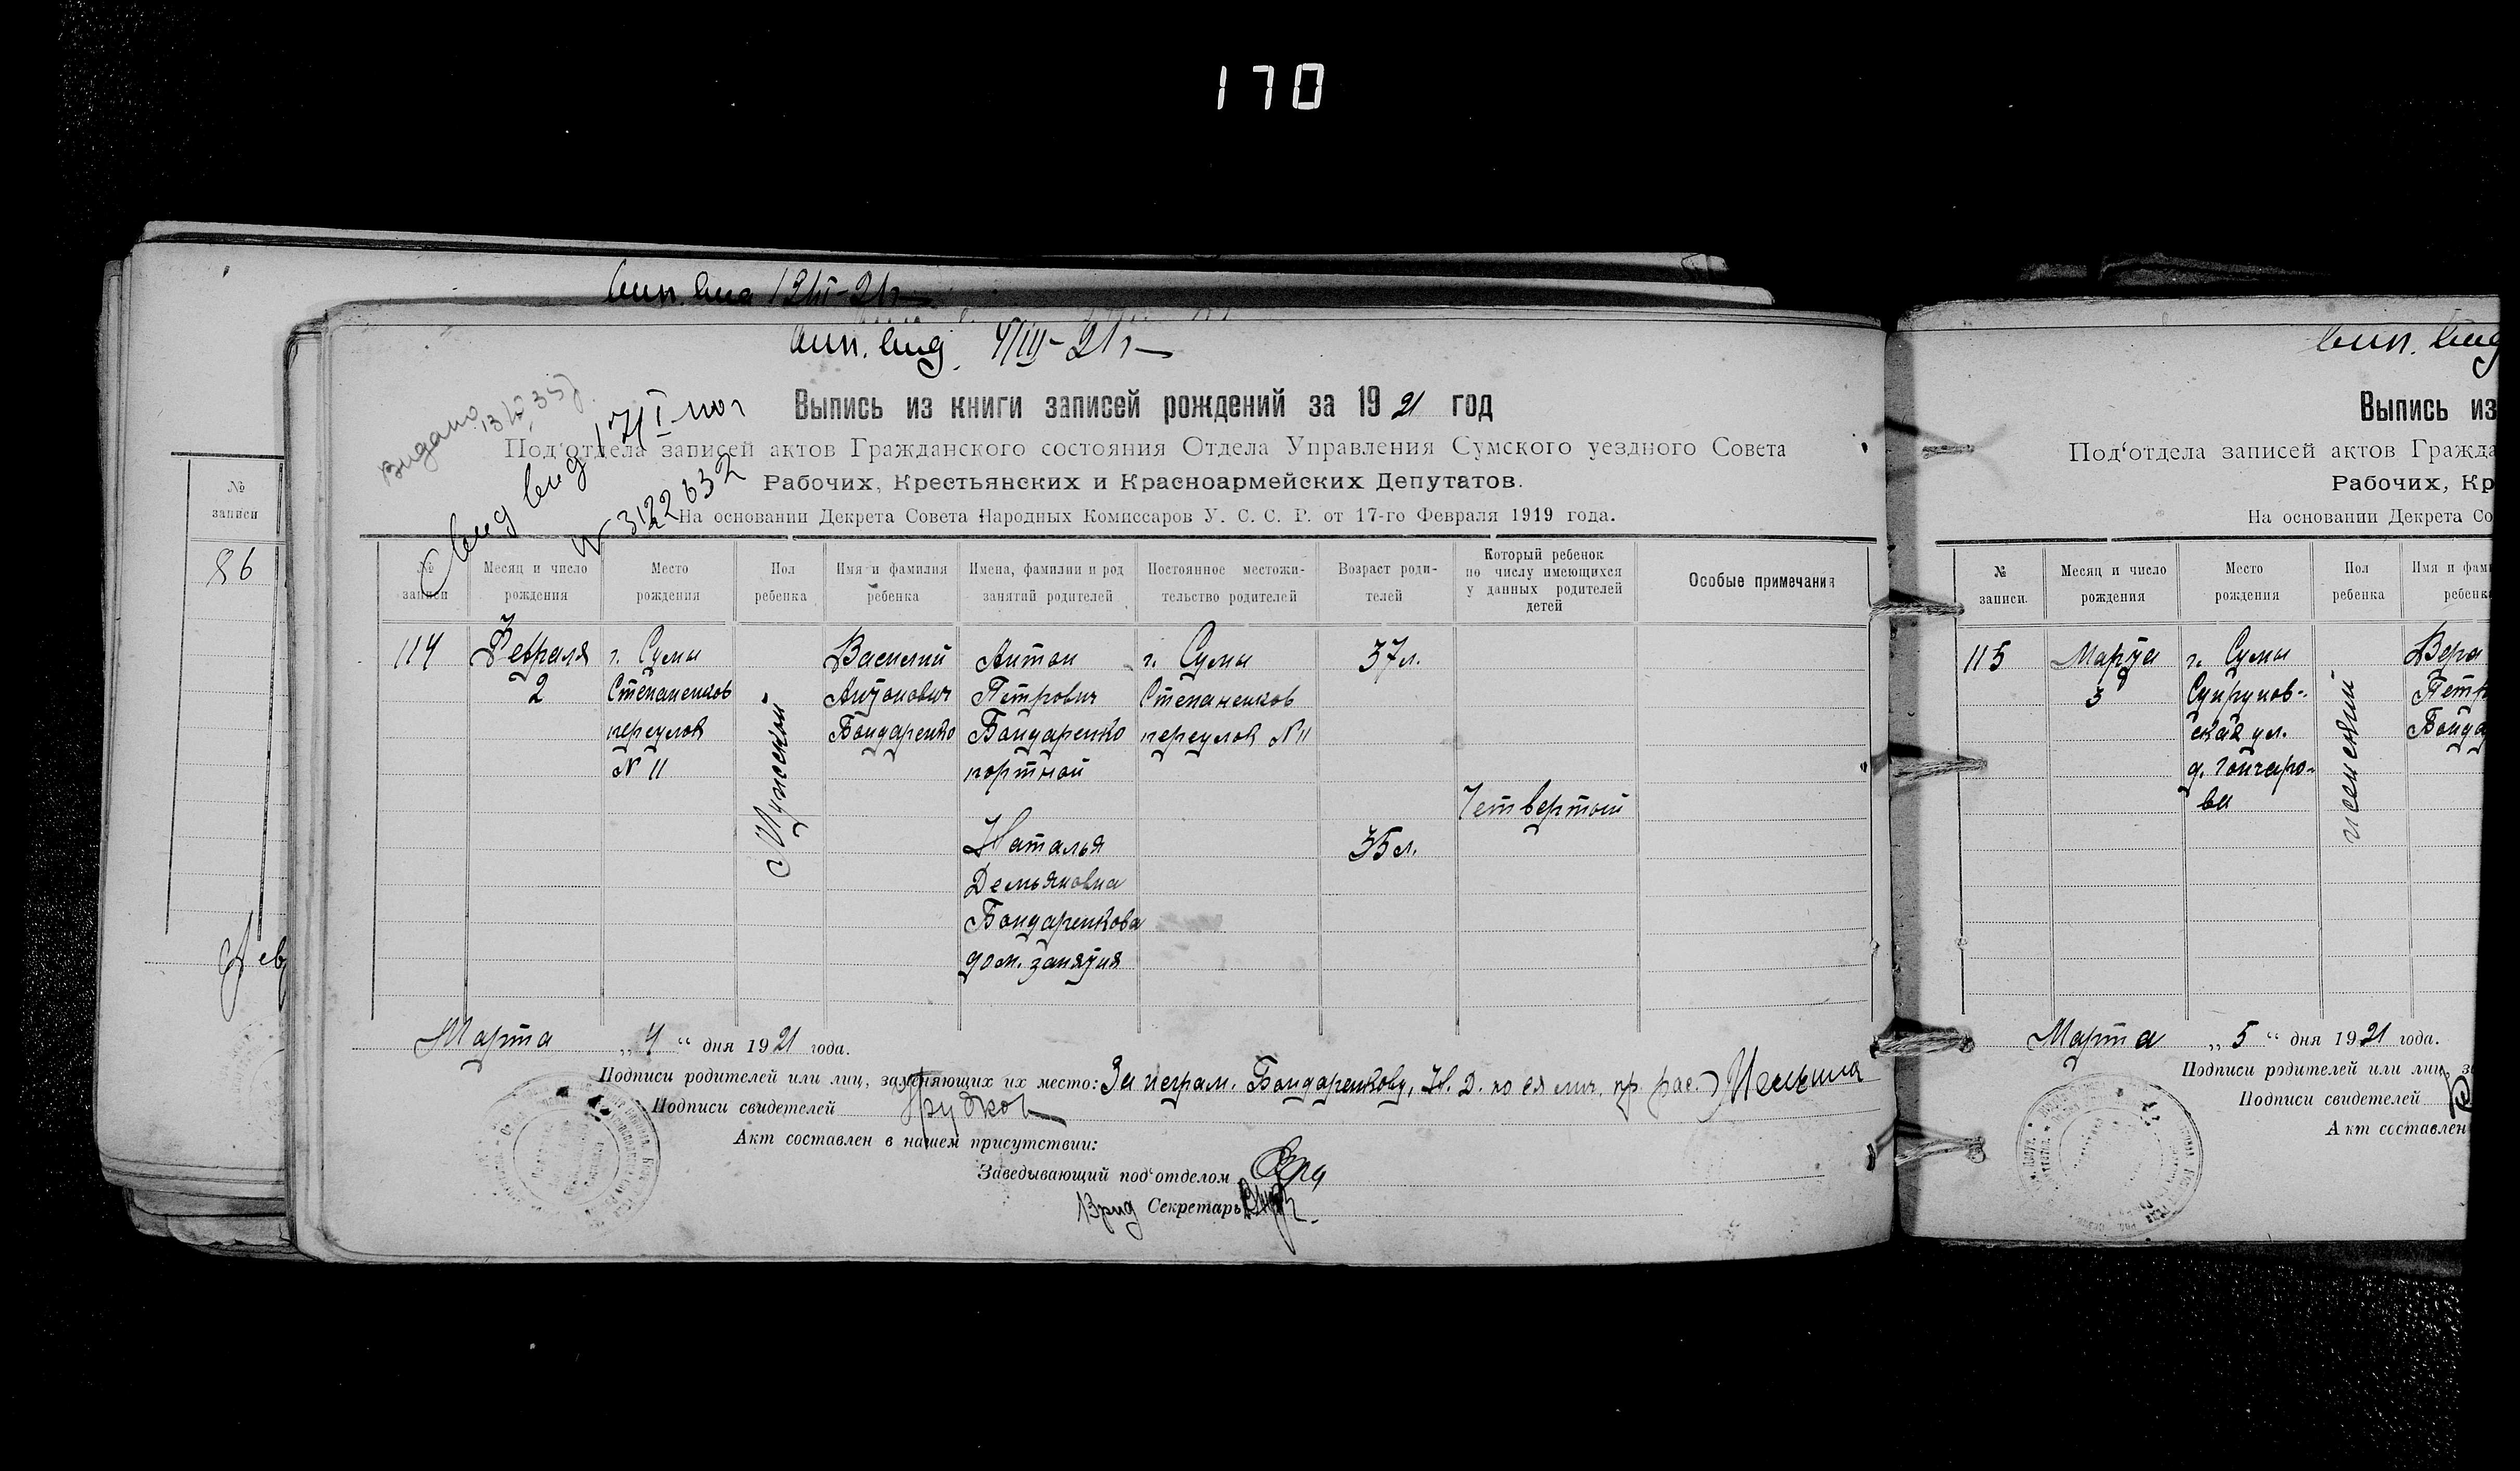 170
вып. вид 4/III-21 г
Выпись из книги записей рождений за 19 21 год
Под'отдела записей актов Гражданского состояния Отдела Управления Сумского уездного Совета
Рабочих, Крестьянских и Красноармейских Депутатов.
На основании Декрета Совета Народных Комиссаров У. С. С. Р. от 17-го Февраля 1919 года.
№ записи
Месяц и число рождения
Место рождения
Пол ребенка
Имя и фамилия ребенка
Имена, фамилии и род занятий родителей
Постоянное местожи-
тельство родителей
Возраст роди-
телей
Который ребенок
по числу имеющихся
у данных родителей
детей
Особые примечания
114
Февраля
2
г. Сумы
Степаненков
переулок
N 11
Мужской
Василий
Антонович
Бондаренко
Антон
Петрович
Бондаренко
портной
Наталья
Демьяновна
Бондаренкова
дом. занятия
г. Сумы
Степаненков
переулок N 11
37 л.
35 л.
Четвертый
Марта „ 4 “ дня 19 21 года.
Подписи родителей или лиц, заменяющих их место: За неграм. Бондаренкову, Н. Д. по ея лич. пр. рас.
Подписи свидетелей
Акт составлен в нашем присутствии:
Заведывающий под'отделом
Врид Секретарь
№
записи
86
вып. вид
Выпись из
Под'отдела записей актов Гражда
Рабочих, Кр
На основании Декрета Со
№ записи.
Месяц и число рождения
Место рождения
Пол ребенка
Имя и фам
ребенк
115
Марта
3
г. Сумы
Супрунов-
ская ул.
д. Гончаро-
ва
женский
Вера
Петр
Бонда
Марта „ 5 “ дня 19 21 года.
Подписи родителей или лиц, з
Подписи свидетелей
Акт составлен